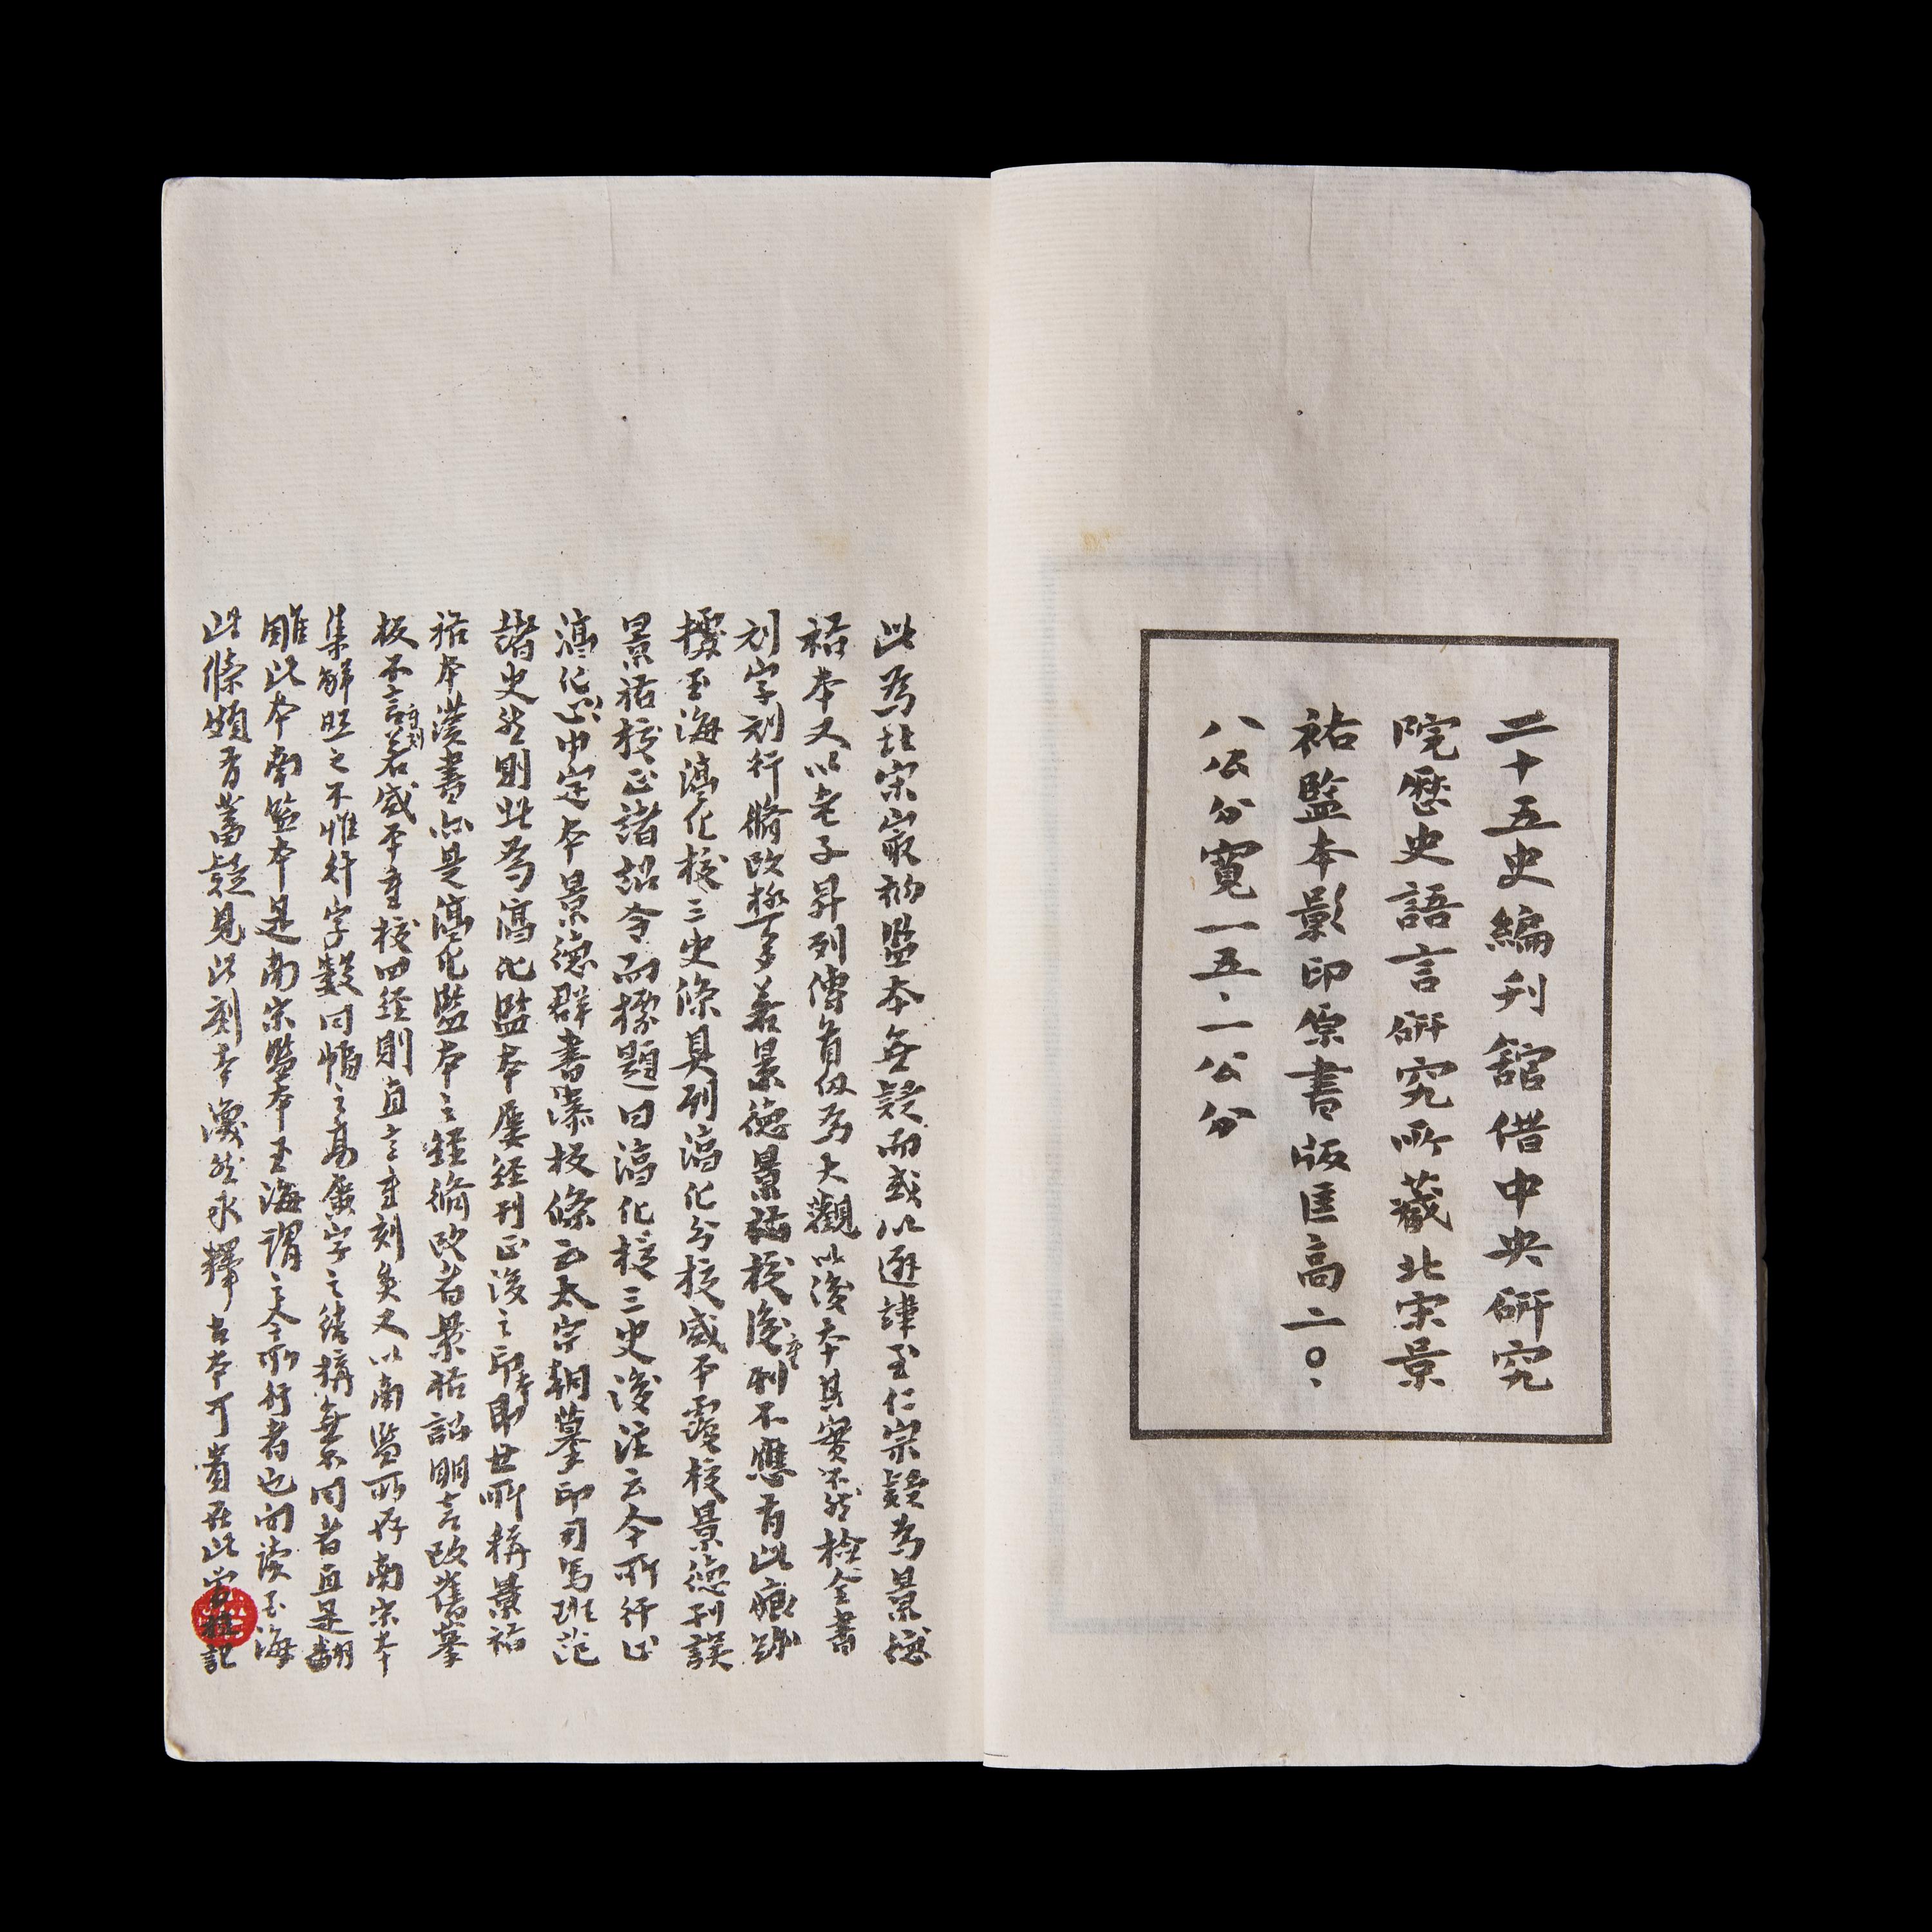 二十五史編刋舘借中央研究
院歷史語言研究所藏北宋景
祐監本影印原書版匡高二〇.
八公分寬一五.一公分
此爲北宋最初監本無疑而或以避諱至仁宗疑爲景德
祐本又以老子昇列傳首仅爲大觀以後本其實不然檢全書
刓字刓行脩改極多若景德景祐校後重刊不應有此痕跡
據玉海淳化校三史條具列淳化分校咸平覆校景德刊誤
景祐校正諸詔令而標題曰淳化校三史後注云今所行止
淳化中定本景德群書漆板條云太宗朝摹印司馬班范
諸史然則此爲淳化監本屢經刊正後之印本即世所稱景祐
祐本漢書亦是淳化監本之經脩改者景祐詔明言改舊摹
板不言重刻若咸平重校四經則直言重刻矣又以南監所存南宋本
集解照之不惟行字數同幅之高廣字之結構無不同者直是翻
雕此本南監本是南宋監本玉海謂之今所行者也向讀玉海
此條頗有蓄疑見此刻本渙然氷釋古本可貴在此 記